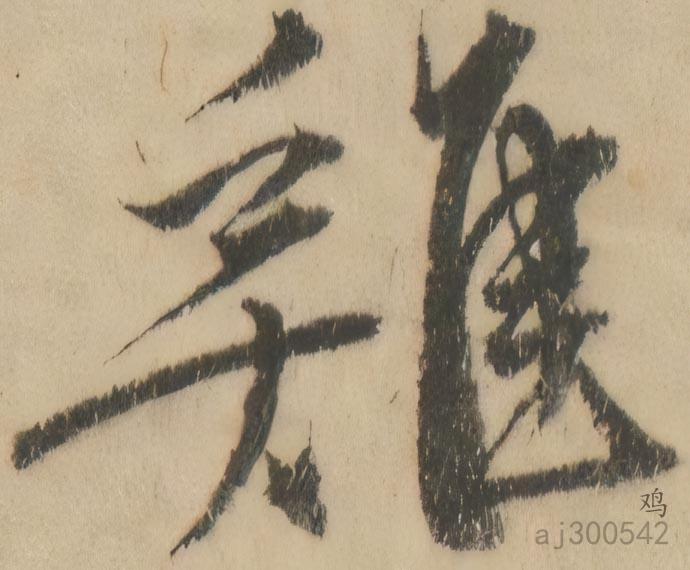 雞
鸡
aj300542